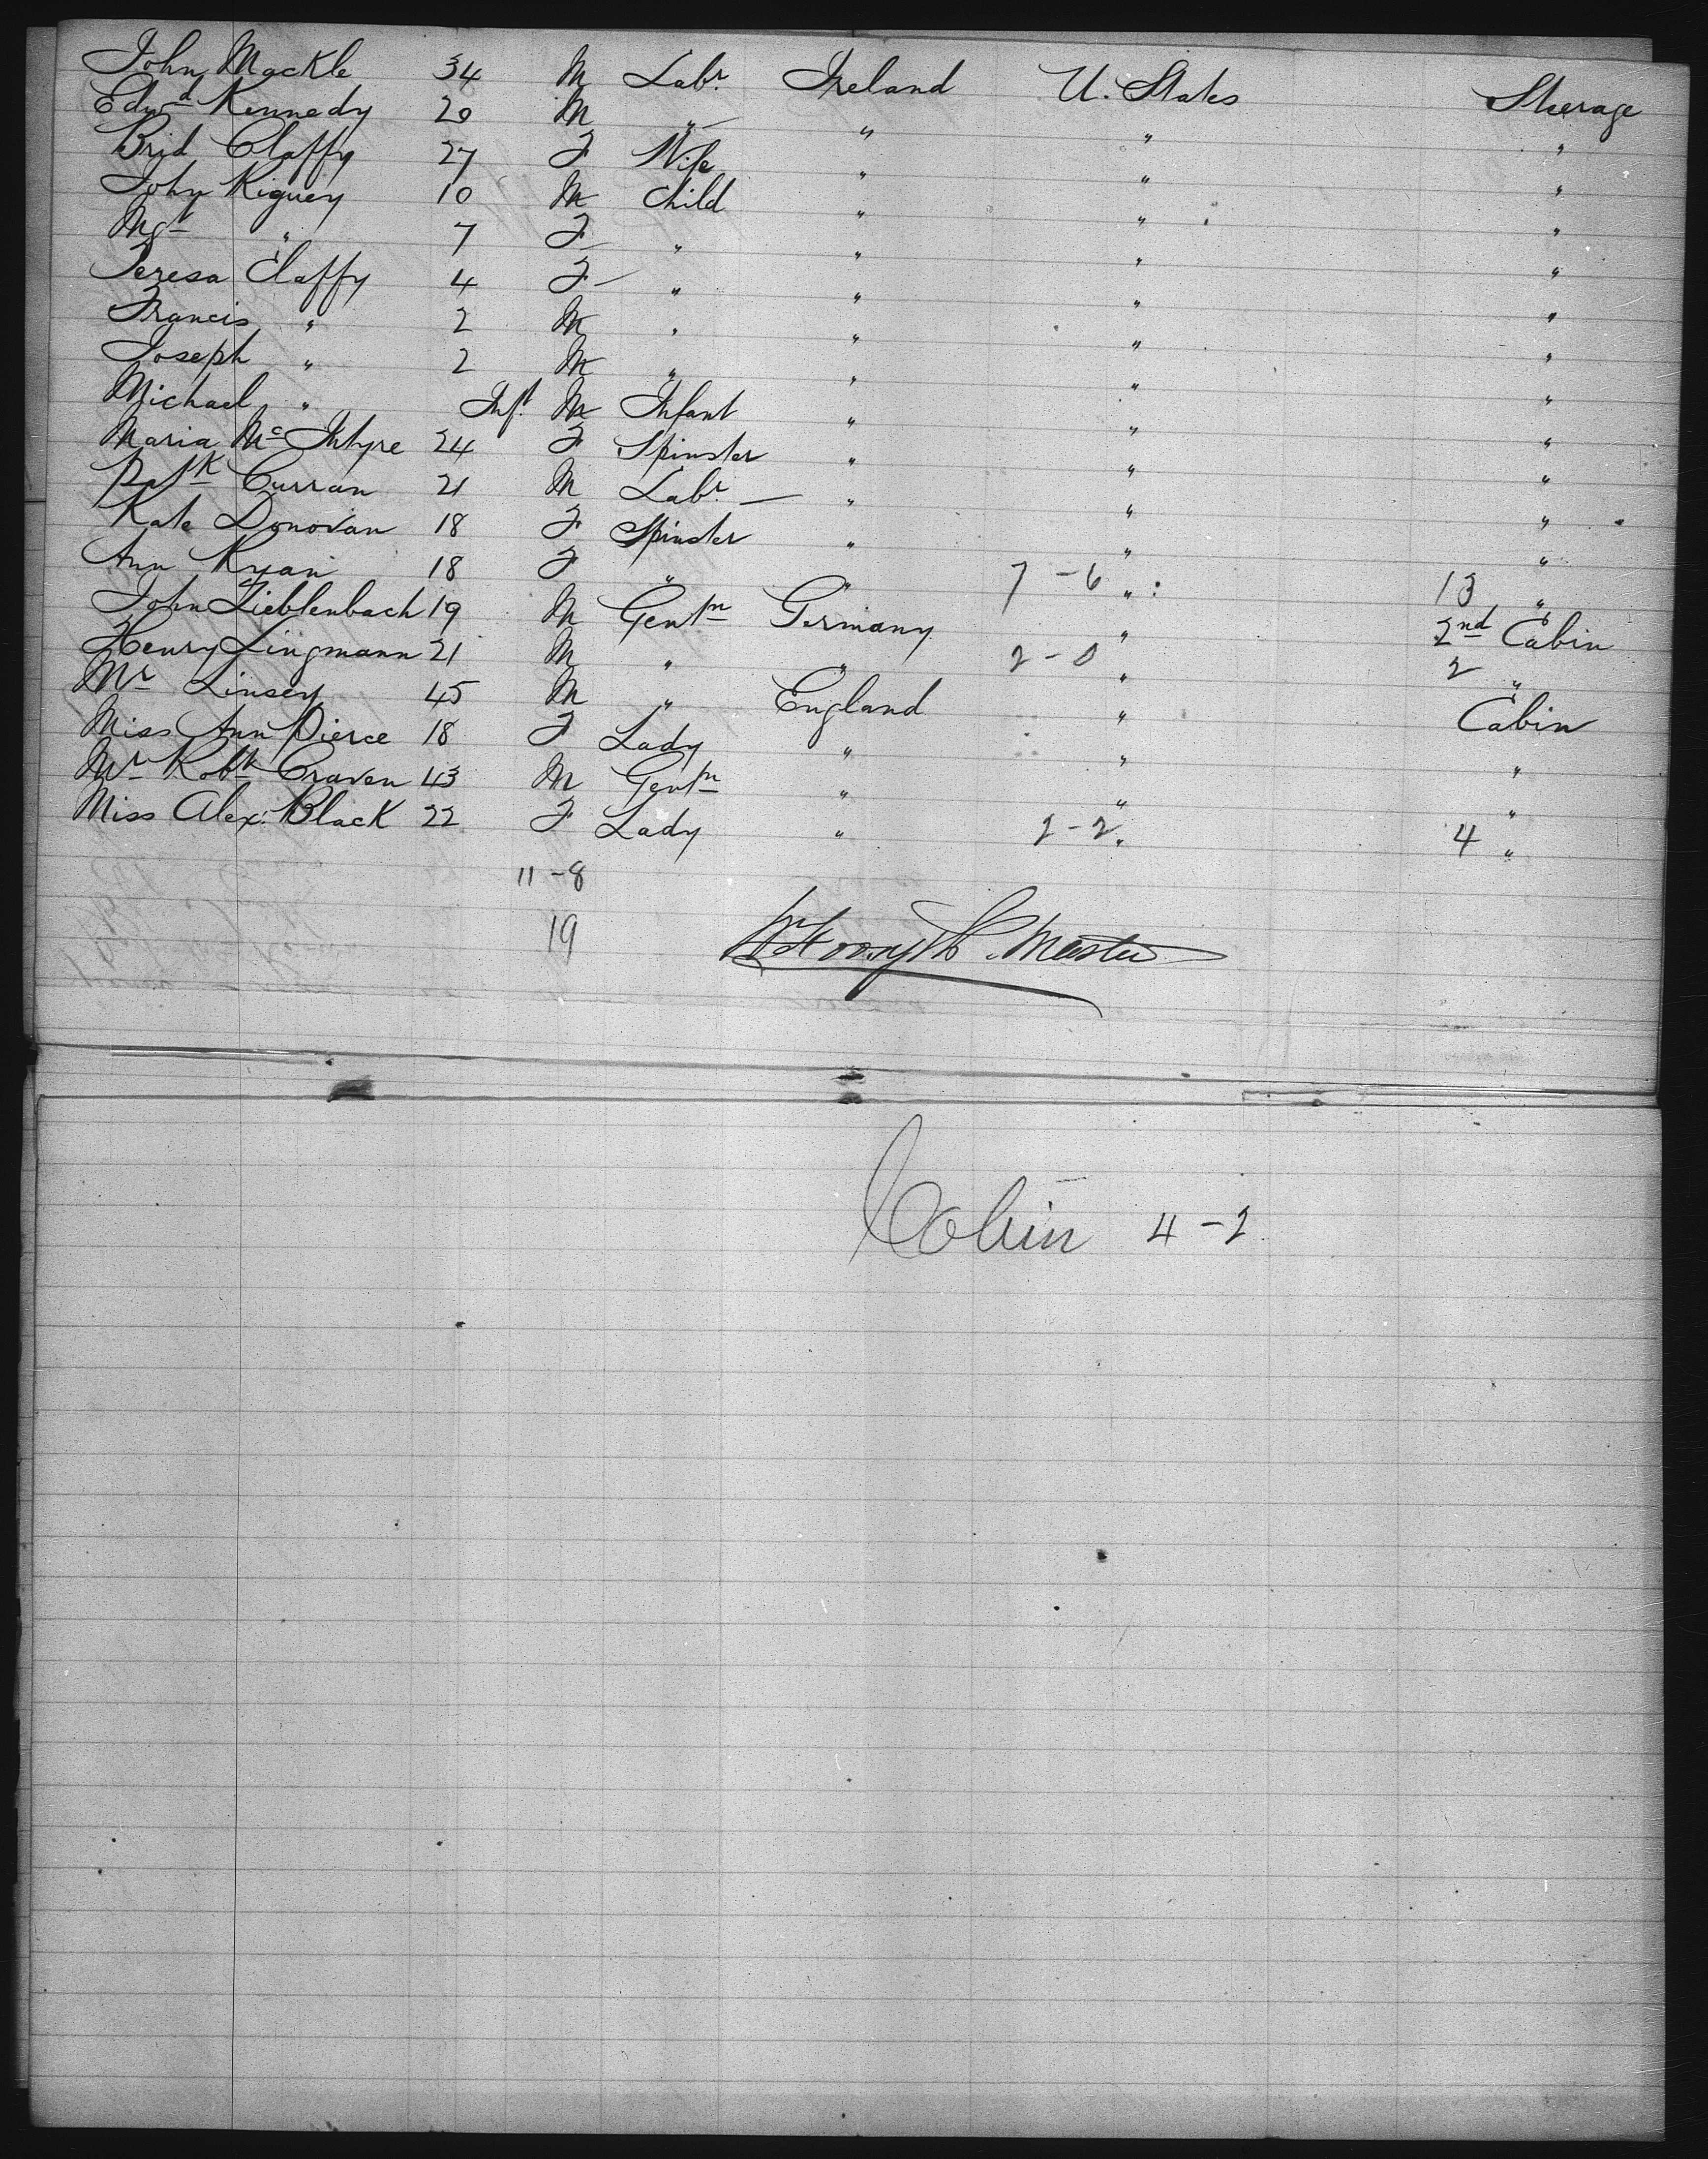 John Mackle 34 M Labr. Ireland U. States Steerage
Edwd Kennedy 20 M " " " "
Brid Claffy 27 F Wife " " "
John Kiguey 10 M Child " " "
Mgt " 7 F " " " "
Teresa Claffy 4 F " " " "
Francis " 2 M " " " "
Joseph " 2 M " " " "
Michael " Inft. M Infant " " "
Maria Mc Intyre 24 F Spinster " " "
Patk Curran 21 M Labr. " " "
Kate Donovan 18 F Spinster " " "
Ann Ryan 18 F " " 7-6 " 13 "
John Lieblenbach 19 M Gentn Germany " 2nd Cabin
Henry Lingmann 21 M " " 2-0 " 2 "
Mr Linsey 45 M " England " Cabin
Miss Ann Pierce 18 F Lady " " "
Mr Robt Craven 43 M Gentn " " "
Miss Alex. Black 22 F Lady " 2-2 " 4 "
11-8
19 Forsyth Master
Cabin 4-2